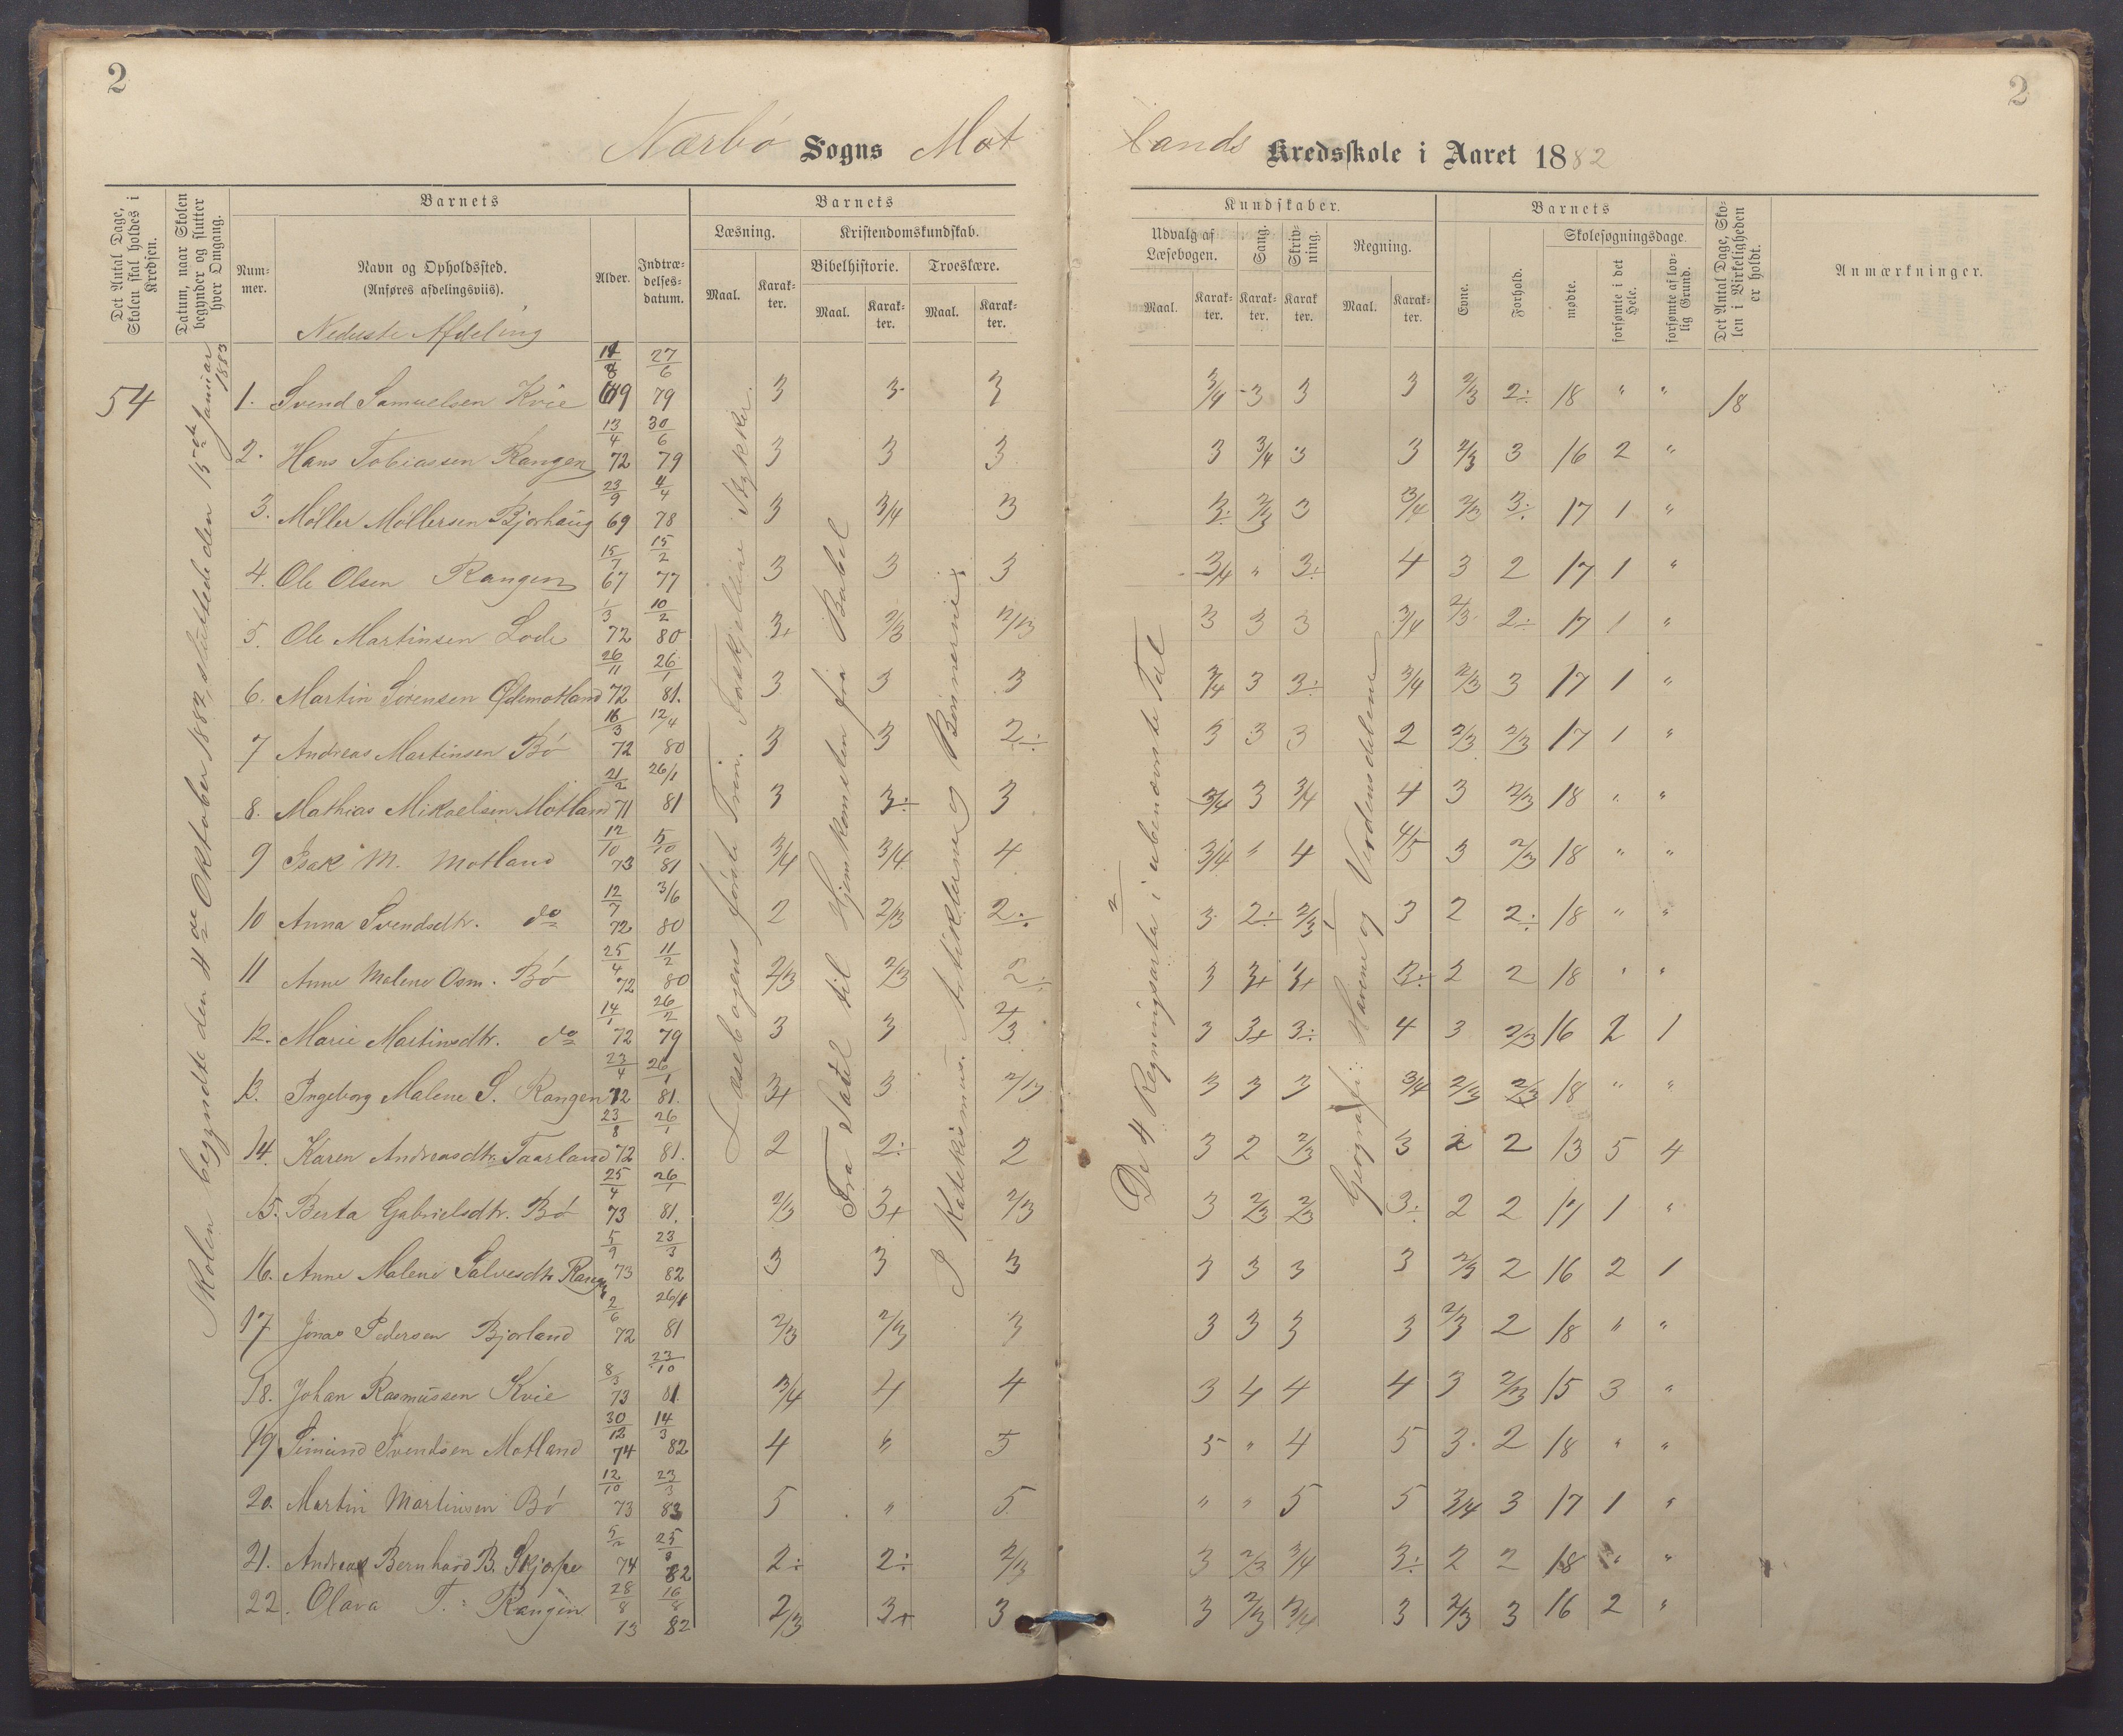 2
2
Nærbø Sogns Mot
lands Kredsskole i Aaret 1882
Det Antal Dage, Skolen skal holdes i Kredsen.
Datum, naar Skolen begynder og slutter hver Omgang.
Barnets
Nummer.
Navn og Opholdssted.
(Anføres afdelingsviis).
Alder.
Indtrædelses-datum.
Barnets
Læsning.
Maal.
Karakter.
Kristendomskundskab.
Bibelhistorie.
Maal.
Karakter.
Troeslære.
Maal.
Karakter.
Kundskaber.
Udvalg af Læsebogen.
Maal.
Karakter.
Sang.
Karakter.
Skrivning.
Karakter.
Regning.
Maal.
Karakter.
Barnets
Evne.
Forhold.
Skolesøgningsdage.
mødte.
forsømte i det Hele.
forsømte af lovlig Grund.
Det Antal Dage, Skolen i Virkeligheden er holdt.
Anmærkninger.
Nederste Afdeling
54
Skolen begyndte den 4de Oktober 1882, sluttede den 15de Januar 1883
Læsebogens første Trin. Forskjellige Stykker.
Fra Saul til Hjemkomsten fra Babel
I Katekismus. Artiklerne og Bønnerne.
De 4 Regningsarter i ubenævnte Tal
Geografi: Havene og Verdensdelene
1. Svend Samuelsen Kvie 69 27/6 79 3 3 3 3/4 3 3 3 2/3 2÷ 18 " " 18
2. Hans Tobiassen Rangen 13/4 72 30/6 79 3 3 3 3 3/4 3 3 2/3 3 16 2 "
3. Møller Møllersen Bjorhaug 23/9 69 4/4 78 3 3/4 3 3÷ 2/3 3 3/4 2/3 3÷ 17 1 "
4. Ole Olsen Rangen 15/7 67 15/2 77 3 3 3 3/4 " 3÷ 4 3 2 17 1 "
5. Ole Martinsen Lode 1/3 72 10/2 80 3+ 2/3 2/3 3 3 3 3/4 2/3 2÷ 17 1 "
6. Martin Sørensen Ødemotland 26/11 72 26/1 81. 3 3 3 3/4 3 3÷ 3/4 2/3 3 17 1 "
7 Andreas Martinsen Bø 16/3 72 12/4 80 3 3 2÷ 3 3 3 2 2/3 2/3 17 1 "
8. Mathias Mikaelsen Motland 21/2 71 26/1 81 3 3÷ 3 3/4 3 3/4 4 3 2/3 18 " "
9 Isak M. Motland 12/10 73 5/10 81 3/4 3/4 4 3/4 " 4 4/5 3 2/3 18 " "
10 Anna Svendsdtr. do 12/7 72 3/6 80 2 2/3 2÷ 3 2÷ 2/3 3 2 2÷ 18 " "
11 Anne Malene Osm. Bø 25/4 72 11/2 80 2/3 2/3 2÷ 3 3+ 3+ 3÷ 2 2 18 " "
12. Marie Martinsdtr. do 14/1 72 26/2 79 3 3 2/3 3 3+ 3÷ 4 3 2/3 16 2 1
13. Ingeborg Malene S. Rangen 23/4 72 26/1 81. 3+ 3 2/3 3 3 3 3/4 2/3 2/3 18 " "
14. Karen Andreasdtr. Taarland 23/8 72 26/1 81. 2 2÷ 2 3 2 2/3 3 2 2 13 5 4
15. Berta Gabrielsdtr. Bø 25/4 73 26/1 81. 2/3 3+ 2/3 3 2/3 2/3 3÷ 2 2 17 1 "
16. Anne Malene Salvesdtr Rangen 5/9 73 23/3 82 3 3 3 3 3 3 3 2/3 2 16 2 1
17 Jonas Pedersen Bjorland 2/6 72 26/1 81 2/3 2/3 3 3 3 3 3 2/3 2 18 " "
18. Johan Rasmussen Kvie 8/3 73 23/10 81 3/4 4 4 3 4 4 4 3 2/3 15 3 "
19 Simund Svendsen Motland 30/12 74 14/3 82 4 " 5 5 " 4 5 3 2 18 " "
20. Martin Martinsen Bø 12/10 73 23/3 83 5 " 5 " " 5 5 3/4 3 17 1 "
21. Andreas Bernhard B. Skjærpe 5/2 74 25/8 82 2÷ 2÷ 2/3 3 2/3 3/4 3÷ 2 2 18 " "
22. Olava T. Rangen 28/8 73 16/8 82 2/3 3+ 3 3 2/3 3/4 3 2/3 3 16 2 "